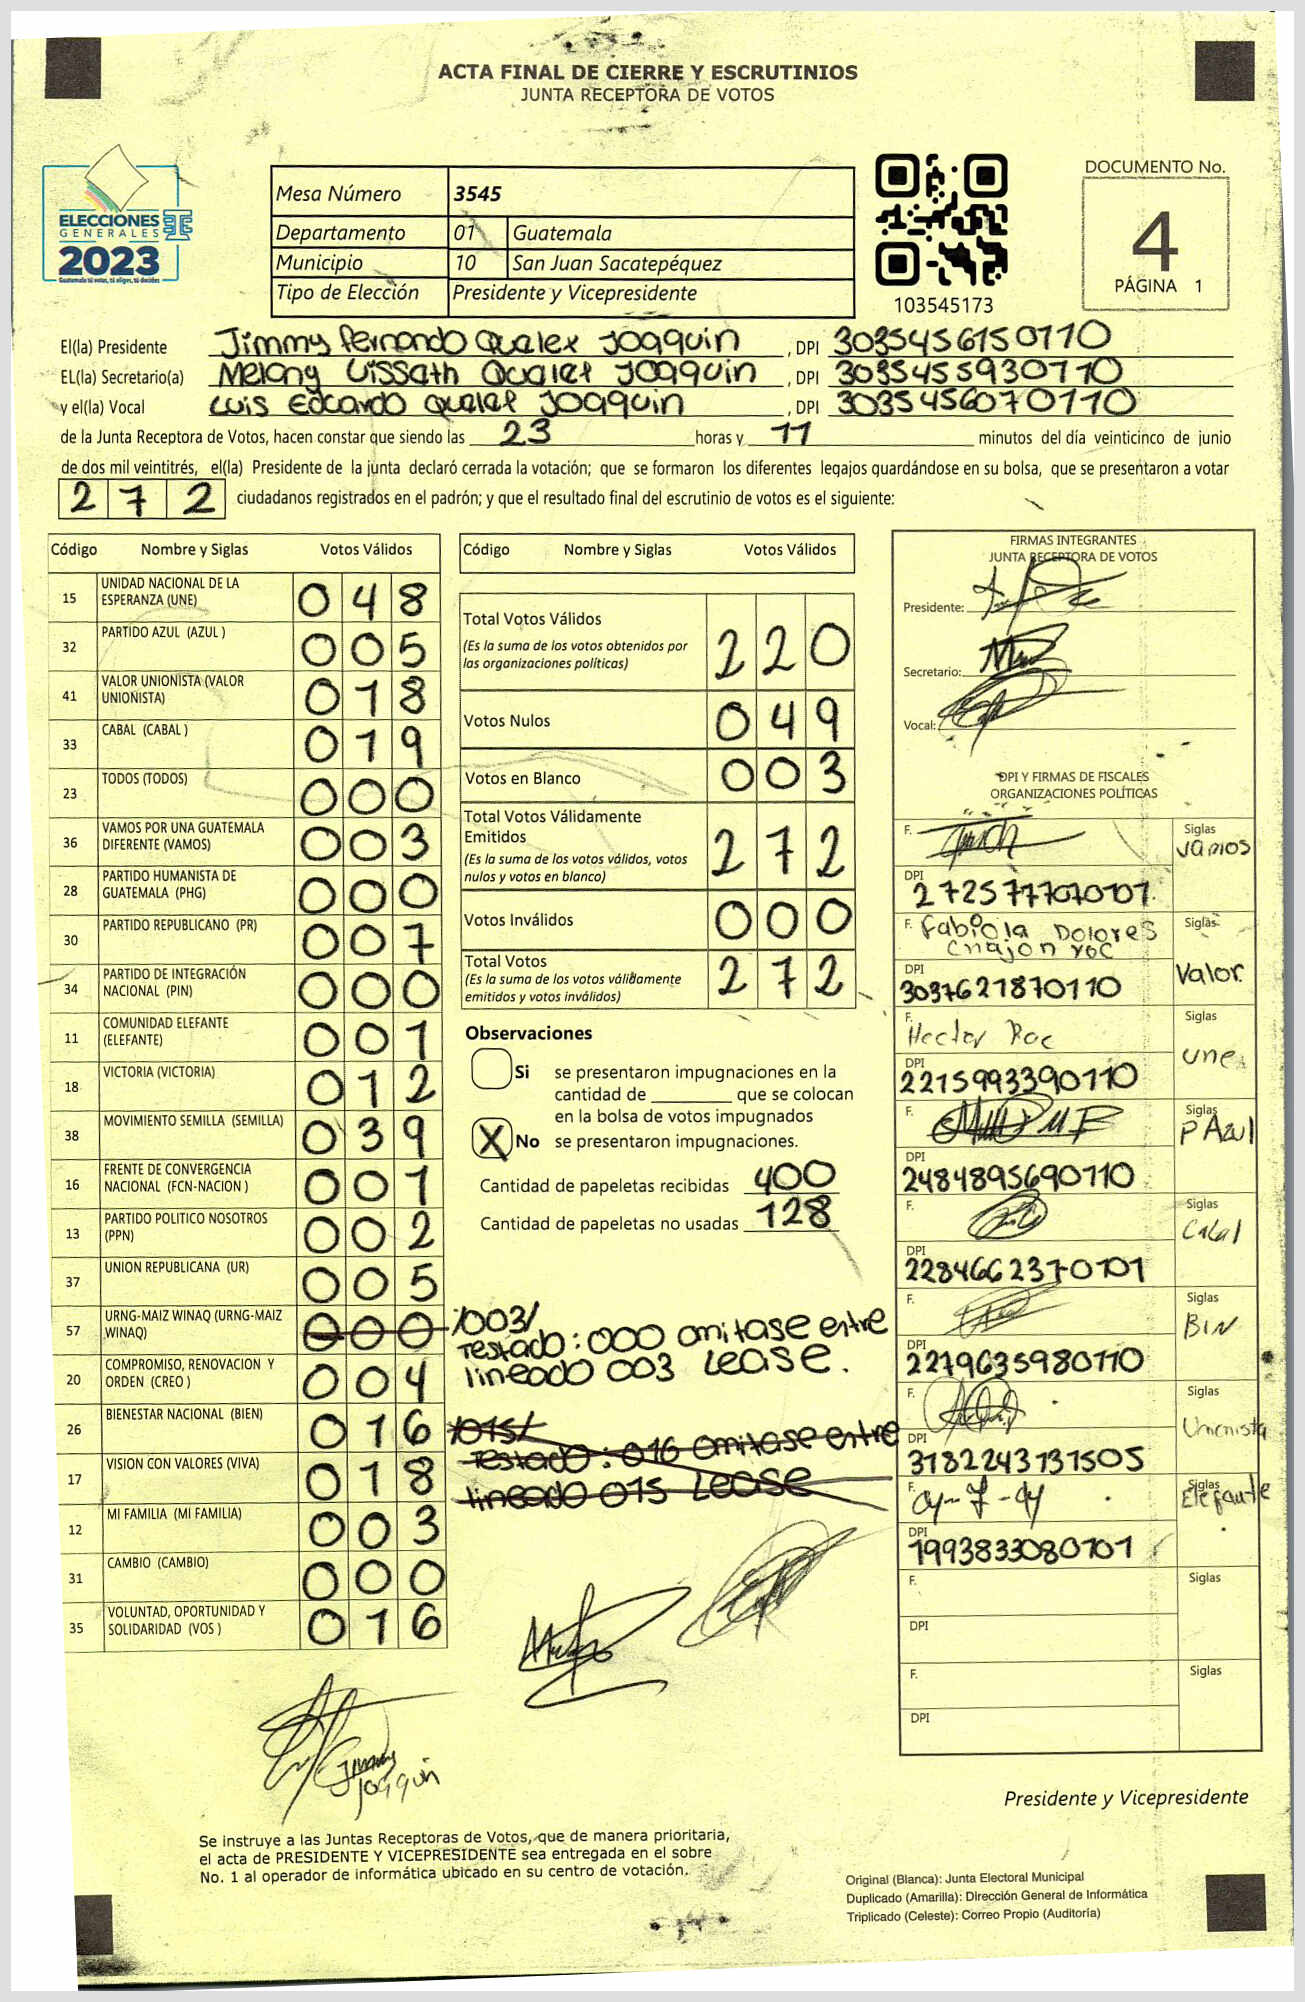 ACTA FINAL DE CIERRE Y ESCRUTINIOS
JUNTA RECEPTORA DE VOTOS
ELECCIONES
GENERALES
2023
Guatemala tú votas, tú eliges, tú decides
Mesa Número 3545
Departamento 01 Guatemala
Municipio 10 San Juan Sacatepéquez
Tipo de Elección Presidente y Vicepresidente
103545173
DOCUMENTO No.
4
PÁGINA 1
El(la) Presidente Jimmy Fernando Qualex Joaquin, DPI 3035456150110
EL(la) Secretario(a) Melany Lissath Qualex Joaquin, DPI 3035455930110
y el(la) Vocal Luis Edcardo Qualex Joaquin, DPI 3035456070110
de la Junta Receptora de Votos, hacen constar que siendo las 23 horas y 11 minutos del día veinticinco de junio
de dos mil veintitrés, el(la) Presidente de la junta declaró cerrada la votación; que se formaron los diferentes legajos guardándose en su bolsa, que se presentaron a votar
272 ciudadanos registrados en el padrón; y que el resultado final del escrutinio de votos es el siguiente:
Código Nombre y Siglas Votos Válidos
15 UNIDAD NACIONAL DE LA ESPERANZA (UNE) 048
32 PARTIDO AZUL (AZUL ) 005
41 VALOR UNIONISTA (VALOR UNIONISTA) 018
33 CABAL (CABAL ) 019
23 TODOS (TODOS) 000
36 VAMOS POR UNA GUATEMALA DIFERENTE (VAMOS) 003
28 PARTIDO HUMANISTA DE GUATEMALA (PHG) 000
30 PARTIDO REPUBLICANO (PR) 007
34 PARTIDO DE INTEGRACIÓN NACIONAL (PIN) 000
11 COMUNIDAD ELEFANTE (ELEFANTE) 001
18 VICTORIA (VICTORIA) 012
38 MOVIMIENTO SEMILLA (SEMILLA) 039
16 FRENTE DE CONVERGENCIA NACIONAL (FCN-NACION ) 001
13 PARTIDO POLITICO NOSOTROS (PPN) 002
37 UNION REPUBLICANA (UR) 005
57 URNG-MAIZ WINAQ (URNG-MAIZ WINAQ) 000
20 COMPROMISO, RENOVACION Y ORDEN (CREO ) 004
26 BIENESTAR NACIONAL (BIEN) 016
17 VISION CON VALORES (VIVA) 018
12 MI FAMILIA (MI FAMILIA) 003
31 CAMBIO (CAMBIO) 000
35 VOLUNTAD, OPORTUNIDAD Y SOLIDARIDAD (VOS ) 016
Código Nombre y Siglas Votos Válidos
Total Votos Válidos 220
(Es la suma de los votos obtenidos por
las organizaciones políticas)
Votos Nulos 049
Votos en Blanco 003
Total Votos Válidamente
Emitidos 272
(Es la suma de los votos válidos, votos
nulos y votos en blanco)
Votos Inválidos 000
Total Votos 272
(Es la suma de los votos válidamente
emitidos y votos inválidos)
Observaciones
Si se presentaron impugnaciones en la
cantidad de ________ que se colocan
en la bolsa de votos impugnados
X No se presentaron impugnaciones.
Cantidad de papeletas recibidas 400
Cantidad de papeletas no usadas 128
/003/
Testado: 000 omitase entre
lineado 003 Lease.
/015/
Testado: 016 omitase entre
lineado 015 Lease
Jimmy
Joaquin
FIRMAS INTEGRANTES
JUNTA RECEPTORA DE VOTOS
Presidente:
Secretario:
Vocal:
DPI Y FIRMAS DE FISCALES
ORGANIZACIONES POLÍTICAS
F. Siglas Vamos
DPI 2725777070101
F. Fabiola Dolores Siglas
Chajon Roc Valor
DPI 3037621870110
F. Hector Roc Siglas une
DPI 2215993390110
F. Siglas P Azul
DPI 2484895690110
F. Siglas Cabal
DPI 2284662370101
F. Siglas BIN
DPI 2279635980110
F. Siglas Unionista
DPI 3182243131505
F. Siglas Elefante
DPI 1993833080101
F. Siglas
DPI
F. Siglas
DPI
Presidente y Vicepresidente
Se instruye a las Juntas Receptoras de Votos, que de manera prioritaria,
el acta de PRESIDENTE Y VICEPRESIDENTE sea entregada en el sobre
No. 1 al operador de informática ubicado en su centro de votación.
Original (Blanca): Junta Electoral Municipal
Duplicado (Amarilla): Dirección General de Informática
Triplicado (Celeste): Correo Propio (Auditoría)